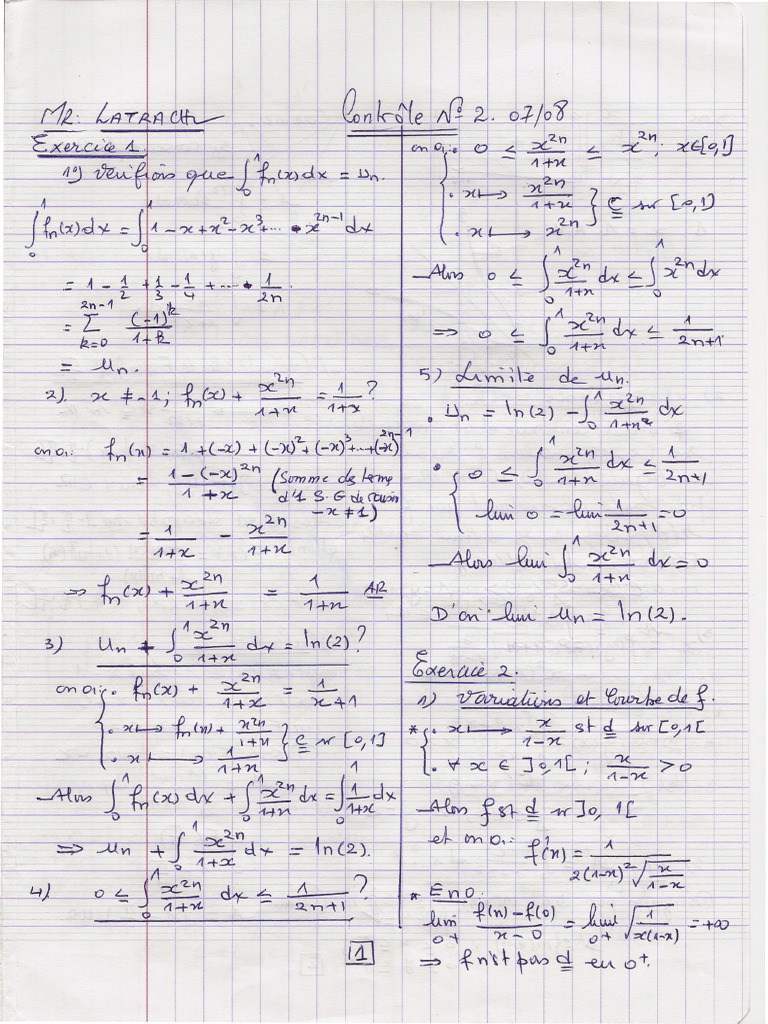 Mr: LATRACH
Contrôle N° 2. 07/08
Exercice 1.
1°) Vérifions que ∫₀¹ fₙ(x) dx = Uₙ.
∫₀¹ fₙ(x) dx = ∫₀¹ 1 - x + x² - x³ + ... - x^{2n-1} dx
= 1 - 1/2 + 1/3 - 1/4 + .... - 1/2n.
= Σ_{k=0}^{2n-1} (-1)^k/(1+k)
= Uₙ.
2). x ≠ -1; fₙ(x) + x^{2n}/(1+x) = 1/(1+x) ?
on a: fₙ(x) = 1 + (-x) + (-x)² + (-x)³ + ... + (-x)^{2n-1}
= (1-(-x)^{2n})/(1+x) (Somme des terme
d'1 S.G de raison
-x ≠ 1)
= 1/(1+x) - x^{2n}/(1+x)
⇒ fₙ(x) + x^{2n}/(1+x) = 1/(1+x)
3) Uₙ + ∫₀¹ x^{2n}/(1+x) dx = ln(2) ?
on a: . fₙ(x) + x^{2n}/(1+x) = 1/(x+1)
. x ↦ fₙ(x) + x^{2n}/(1+x)
. x ↦ 1/(1+x) } C sr [0,1]
Alors ∫₀¹ fₙ(x) dx + ∫₀¹ x^{2n}/(1+x) dx = ∫₀¹ 1/(1+x) dx
⇒ Uₙ + ∫₀¹ x^{2n}/(1+x) dx = ln(2).
4) 0 ≤ ∫₀¹ x^{2n}/(1+x) dx ≤ 1/(2n+1) ?
on a: . 0 ≤ x^{2n}/(1+x) ≤ x^{2n}; x∈[0,1]
. x ↦ x^{2n}/(1+x)
. x ↦ x^{2n} } C sur [0,1]
Alors 0 ≤ ∫₀¹ x^{2n}/(1+x) dx ≤ ∫₀¹ x^{2n} dx
⇒ 0 ≤ ∫₀¹ x^{2n}/(1+x) dx ≤ 1/(2n+1).
5) Limite de Uₙ.
. Uₙ = ln(2) - ∫₀¹ x^{2n}/(1+x) dx
. 0 ≤ ∫₀¹ x^{2n}/(1+x) dx ≤ 1/(2n+1)
lim 0 = lim 1/(2n+1) = 0
Alors lim ∫₀¹ x^{2n}/(1+x) dx = 0
D'où lim Uₙ = ln(2).
Exercice 2.
1) Variations et Courbe de f.
* . x ↦ x/(1-x) st d sur [0,1[
. ∀ x ∈ ]0,1[ ; x/(1-x) > 0
Alors f st d sr ]0, 1[
et on a: f'(x) = 1/(2(1-x)² √(x/(1-x)))
* En 0.
lim_{0+} (f(x)-f(0))/(x-0) = lim_{0+} √(1/(x(1-x))) = +∞
⇒ f n'st pas d en 0⁺.
1